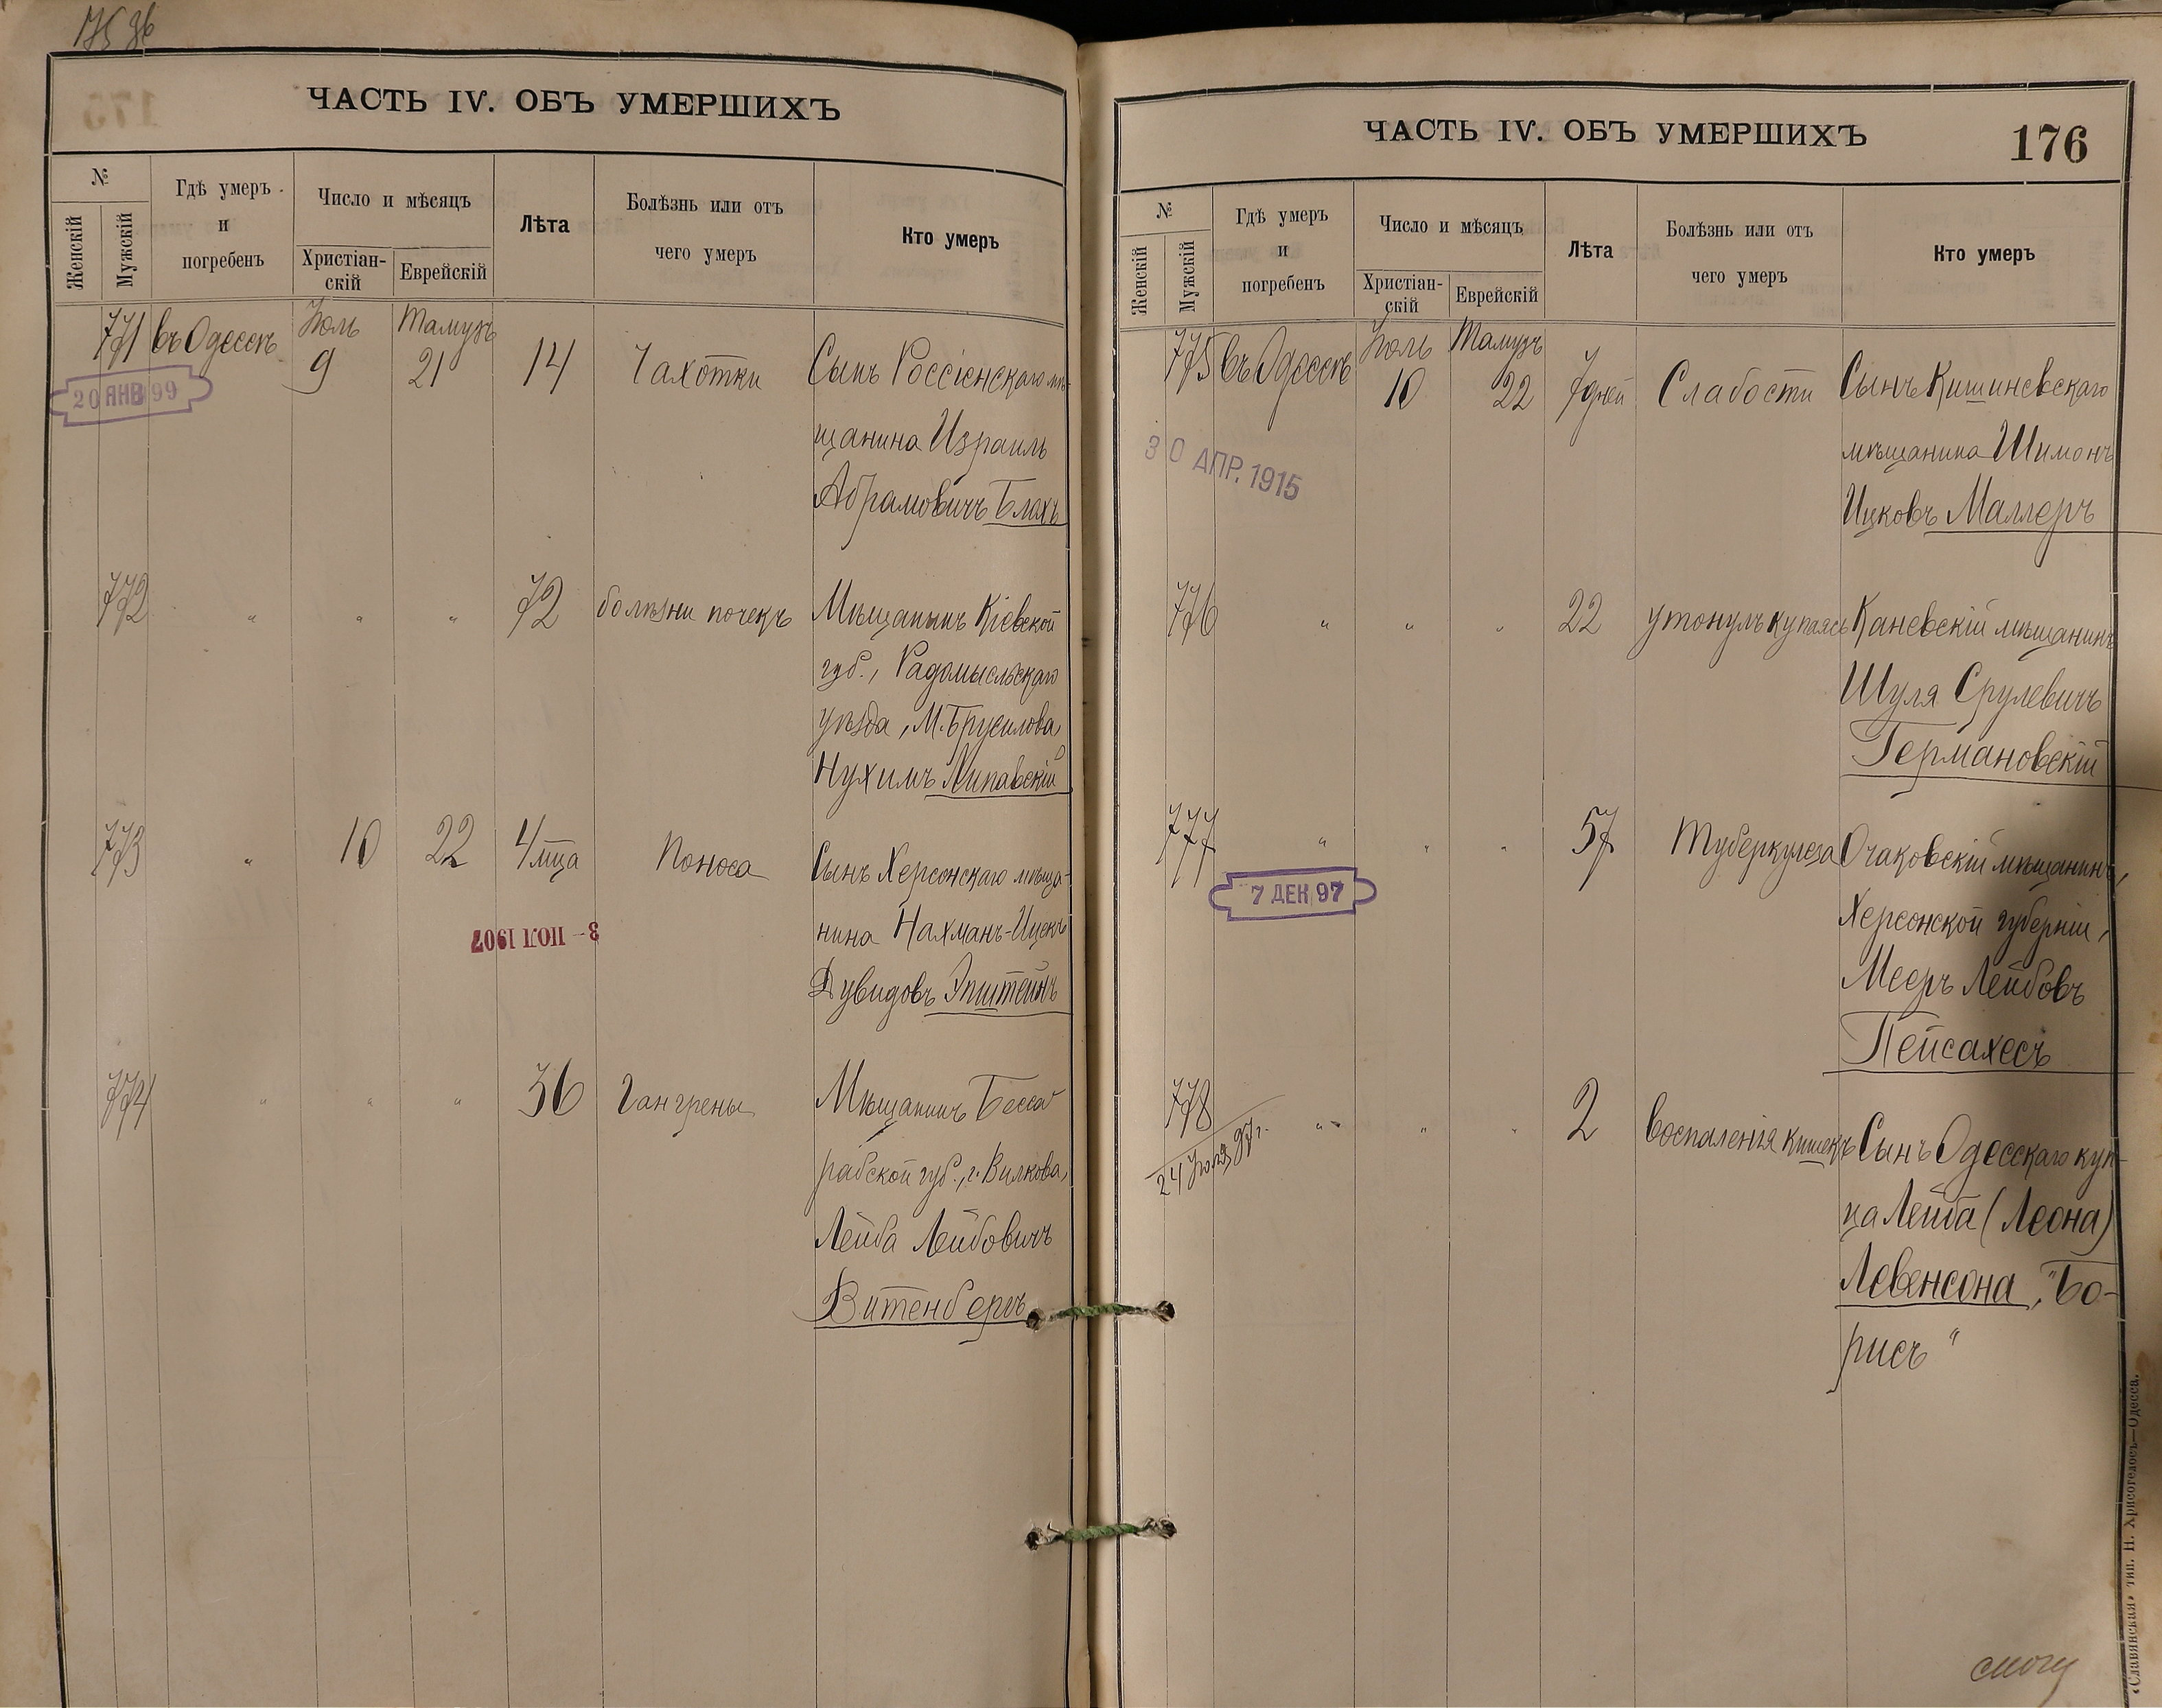 ЧАСТЬ IV. ОБЪ УМЕРШИХЪ
№
Женскій
Мужскій
Гдѣ умеръ
и
погребенъ
Число и мѣсяцъ
Христіан-
скій
Еврейскій
Лѣта
Болѣзнь или отъ
чего умеръ
Кто умеръ
771 въ Одессѣ Іюль 9 Тамузъ 21 14 Чахотки Сынъ Россіенскаго мѣ-
щанина Израиль
Абрамовичъ Блахъ
20 ЯНВ 99
772 " " " 72 болѣзни почекъ Мѣщанинъ Кіевской
губ., Радомысльскаго
уѣзда, М. Брусилова,
Нухимъ Липавскій
773 " 10 22 4 мца Поноса Сынъ Херсонскаго мѣща-
нина Нахманъ-Ицекъ
Дувидовъ Эпштейнъ
3 - ІЮЛ 1907
774 " " " 36 Гангрены Мѣщанинъ Бесса
рабской губ., г. Вилкова,
Лейба Лейбовичъ
Витенбергъ
ЧАСТЬ IV. ОБЪ УМЕРШИХЪ
176
№
Женскій
Мужскій
Гдѣ умеръ
и
погребенъ
Число и мѣсяцъ
Христіан-
скій
Еврейскій
Лѣта
Болѣзнь или отъ
чего умеръ
Кто умеръ
775 въ Одессѣ Іюль 10 Тамузъ 22 7 дней Слабости Сынъ Кишиневскаго
мѣщанина Шимонъ
Ицковъ Маллеръ
30 АПР. 1915
776 " " " 22 утонулъ купаясь Каневскій мѣщанинъ
Шуля Срулевичъ
Германовскій
777 " " " 57 Туберкулеза Очаковскій мѣщанинъ,
Херсонской губерніи,
Мееръ Лейбовъ
Пейсахесъ
7 ДЕК 97
778 " " " 2 воспаленія кишекъ Сынъ Одесскаго куп-
ца Лейба (Леона)
Левенсона, "Бо-
рисъ"
24 Іюля 97 г.
«Славянская» тип. Н. Хрисогелосъ—Одесса.